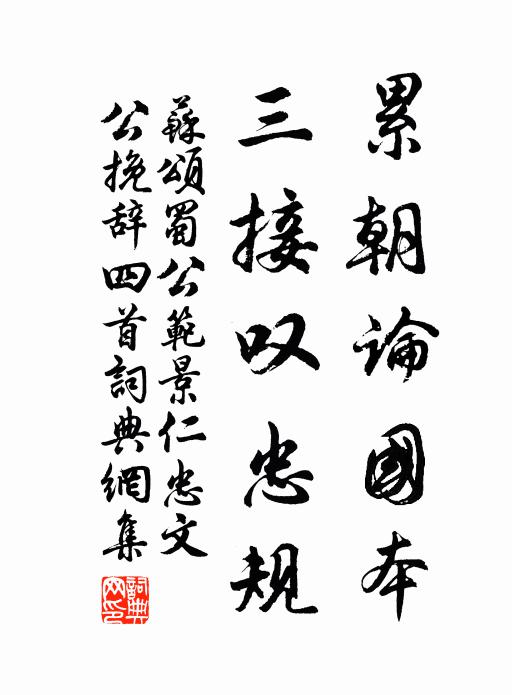 累朝論國本
三接叹忠规
蘇頌蜀公範景仁忠文
公挽辞四首詞典網集
詞典网印